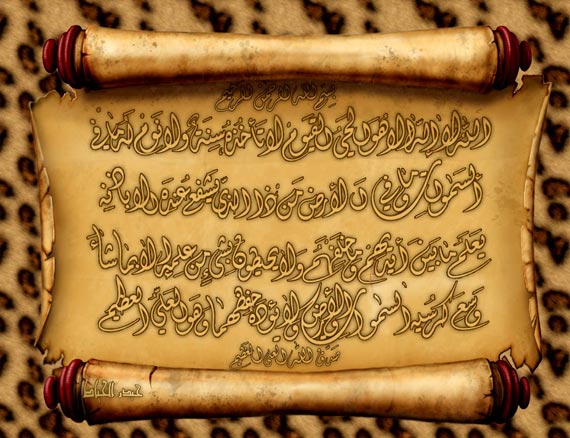 بسم الله الرحمن الرحيم
الله لا إله إلا هو الحي القيوم لا تأخذه سنة ولا نوم له ما في
السموات وما في الأرض من ذا الذي يشفع عنده إلا بإذنه
يعلم ما بين أيديهم وما خلفهم ولا يحيطون بشيء من علمه إلا بما شاء
وسع كرسيه السموات والأرض ولا يئوده حفظهما وهو العلي العظيم
صدق الله العلي العظيم